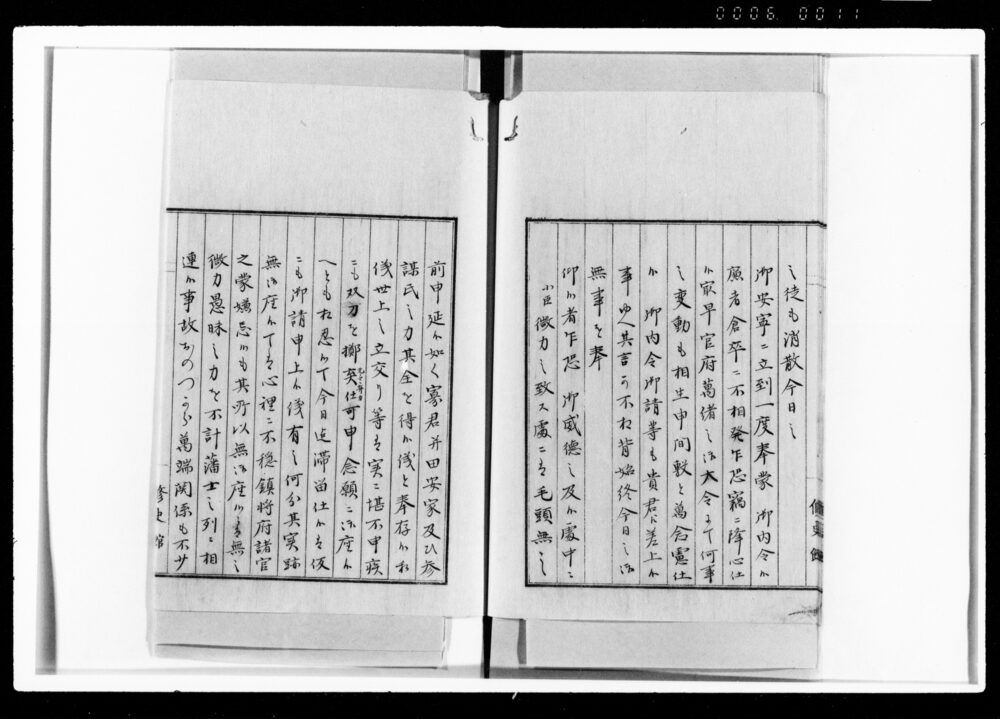 0006 0011
之徒も消散今日之
御安寧ニ立到一度奉蒙 御内令候
廉者倉卒ニ不相発乍恐竊ニ降心仕
候最早官府萬緒之御大令ニ而何事
之変動も相生申間敷と萬念慮仕
候 御内令御請等も貴君江差上候
事ゆへ其言ニ不相背始終今日之御
無事を奉
仰候者乍恐 御威徳之及候處中々
小臣微力之致ス處ニ者毛頭無之
前申延候如く寡君并田安家及ひ参
謀氏之力其全を得候儀と奉存候私
儀世上之立交り等者実ニ堪不申疾
ニも双刀を擲棄仕可申念願ニ御座候
へとも相忍候て今日迄滞留仕候者仮
ニも御請申上候儀有之何分其実跡
無御座候ては心裡ニ不穏鎮将府諸官
之蒙嫌忌候も其所以無御座候者無之
微力愚昧之力を不計藩士之列ニ相
連候事故おのつから萬端関係も不少
修史館